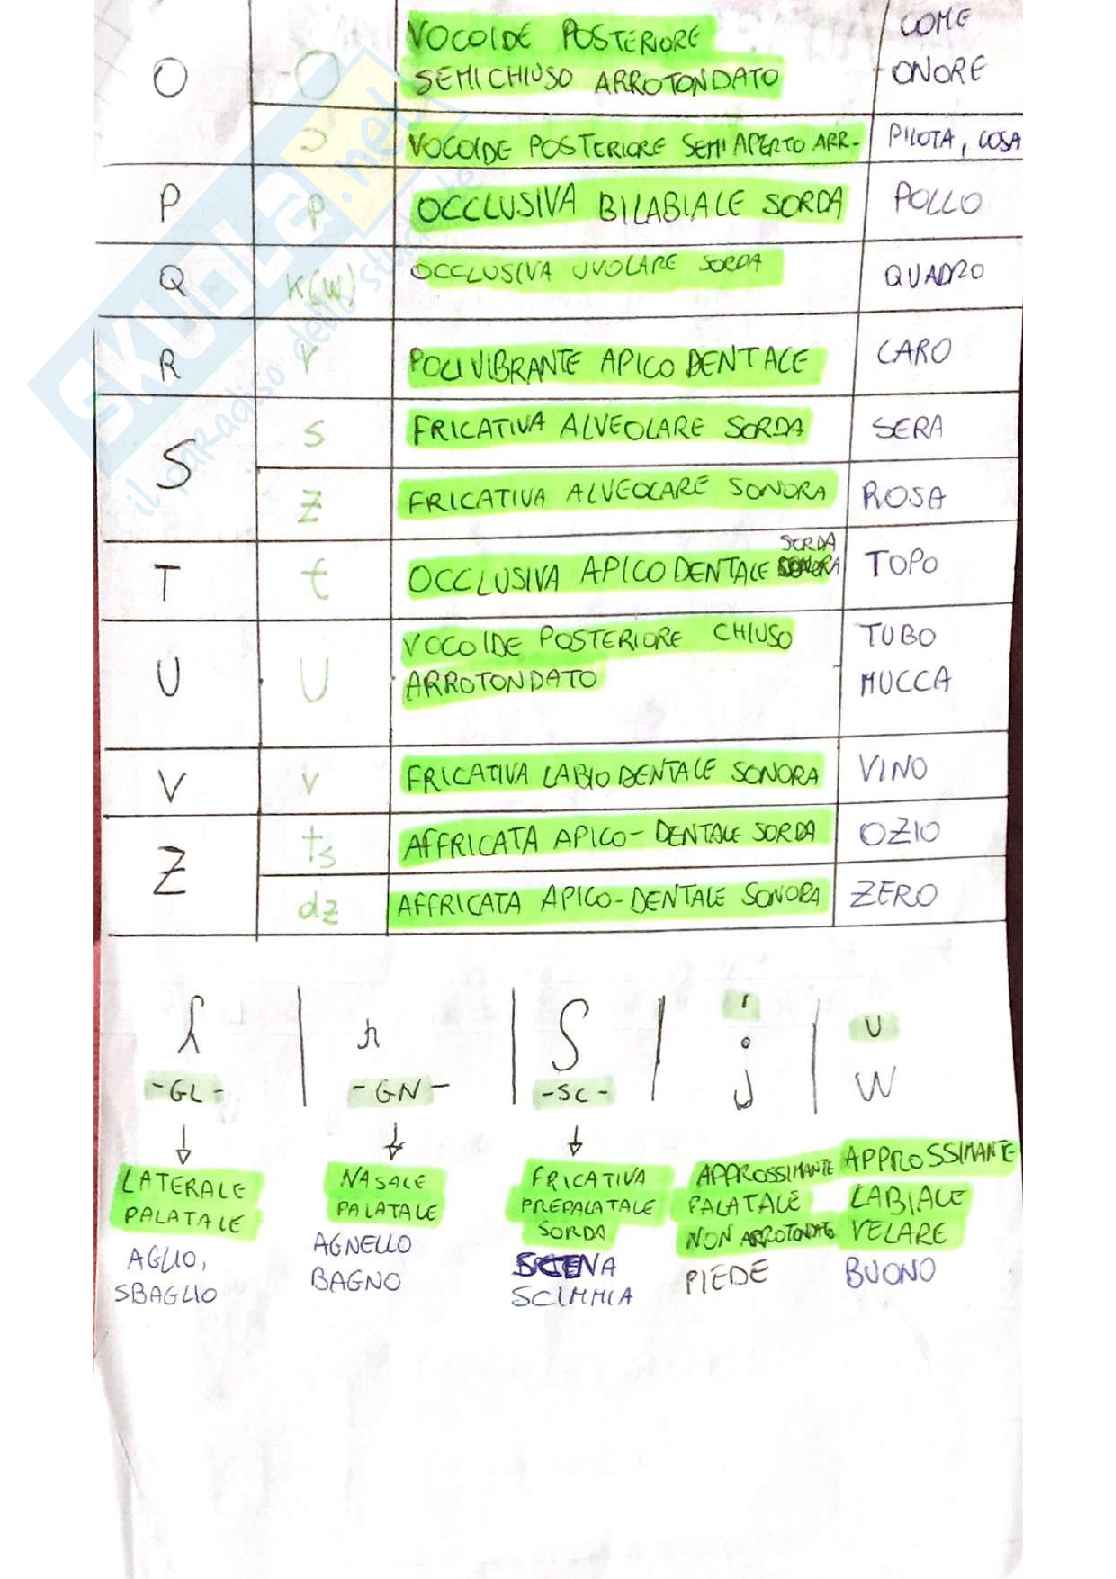 O
O
VOCOIDE POSTERIORE
SEMICHIUSO ARROTONDATO
COME
ONORE
ɔ
VOCOIDE POSTERIORE SEMIAPERTO ARR.
PILOTA, COSA
P
p
OCCLUSIVA BILABIALE SORDA
POLLO
Q
K(W)
OCCLUSIVA UVOLARE SORDA
QUADRO
R
r
POLIVIBRANTE APICO DENTALE
CARO
S
s
FRICATIVA ALVEOLARE SORDA
SERA
z
FRICATIVA ALVEOLARE SONORA
ROSA
T
t
OCCLUSIVA APICO DENTALE SORDA
TOPO
U
U
VOCOIDE POSTERIORE CHIUSO
ARROTONDATO
TUBO
MUCCA
V
v
FRICATIVA LABIO DENTALE SONORA
VINO
Z
ts
AFFRICATA APICO-DENTALE SORDA
OZIO
dz
AFFRICATA APICO-DENTALE SONORA
ZERO
ʎ
-GL-
LATERALE
PALATALE
AGLIO,
SBAGLIO
ɲ
-GN-
NASALE
PALATALE
AGNELLO
BAGNO
ʃ
-SC-
FRICATIVA
PREPALATALE
SORDA
SCENA
SCIMMIA
i
j
APPROSSIMANTE
PALATALE
NON ARROTONDATO
PIEDE
U
W
APPROSSIMANTE
LABIALE
VELARE
BUONO
SKUOLA.net
il paradiso dello studente